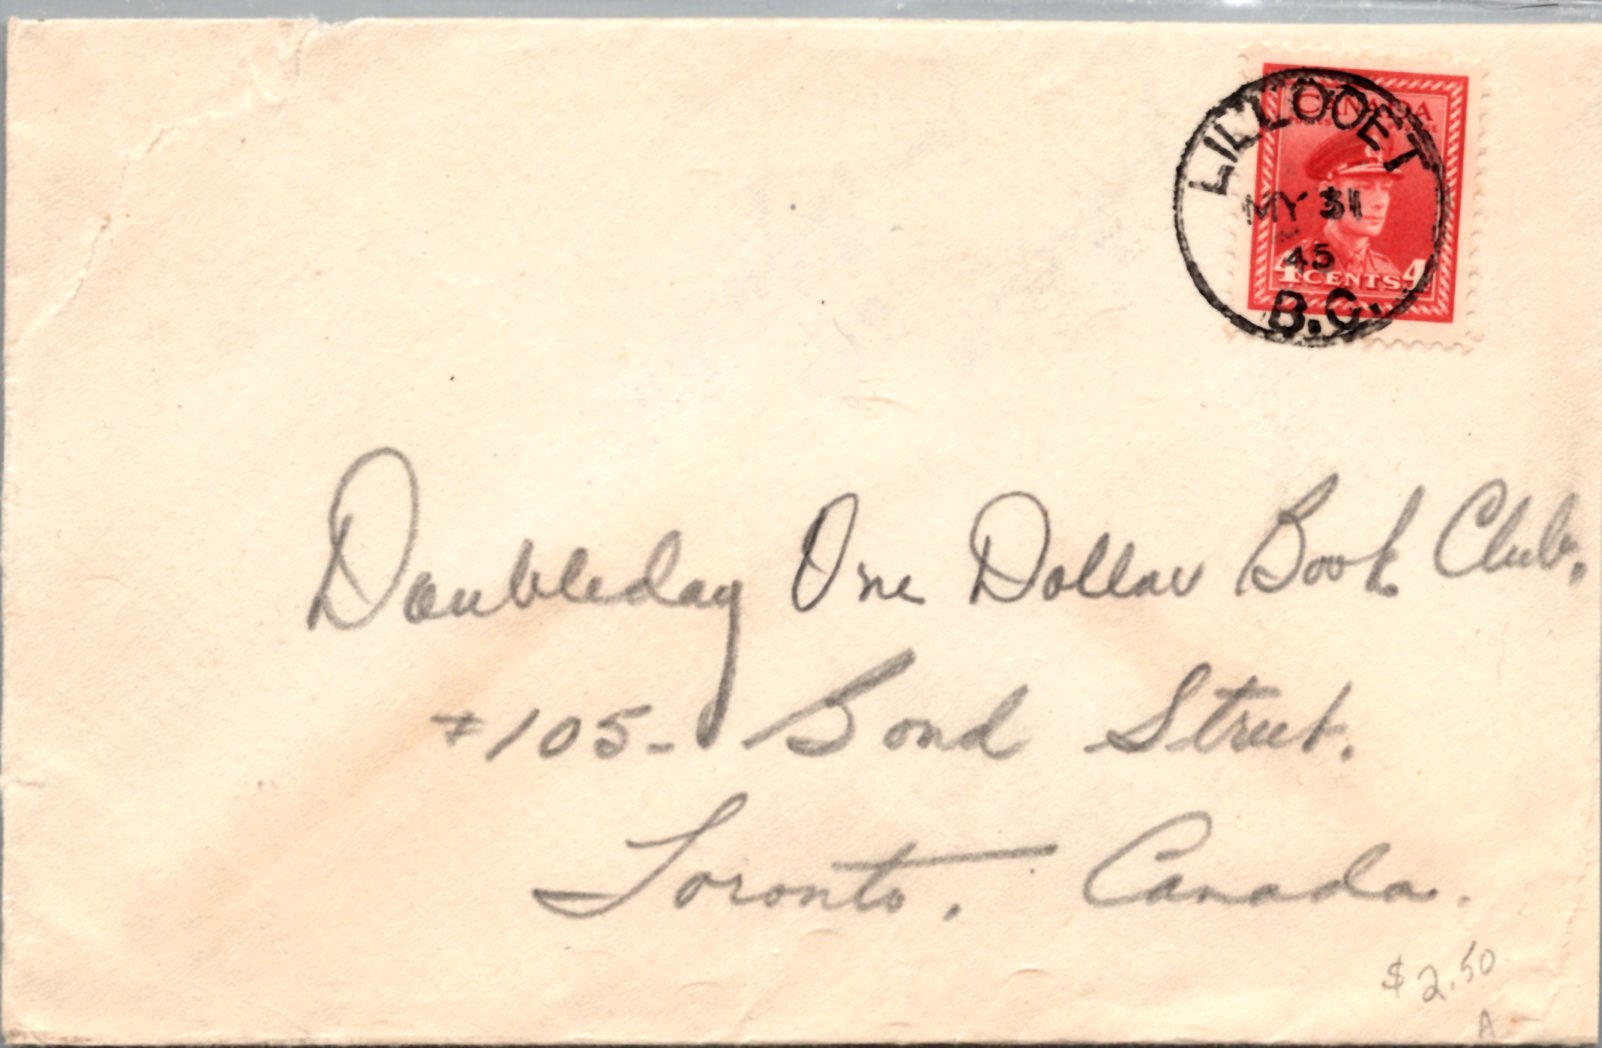 CANADA
LILLOOET
MY 31
45
4 CENTS 4
B.C.
Doubleday One Dollar Book Club.
#105- Bond Street.
Toronto. Canada.
$2.50
A